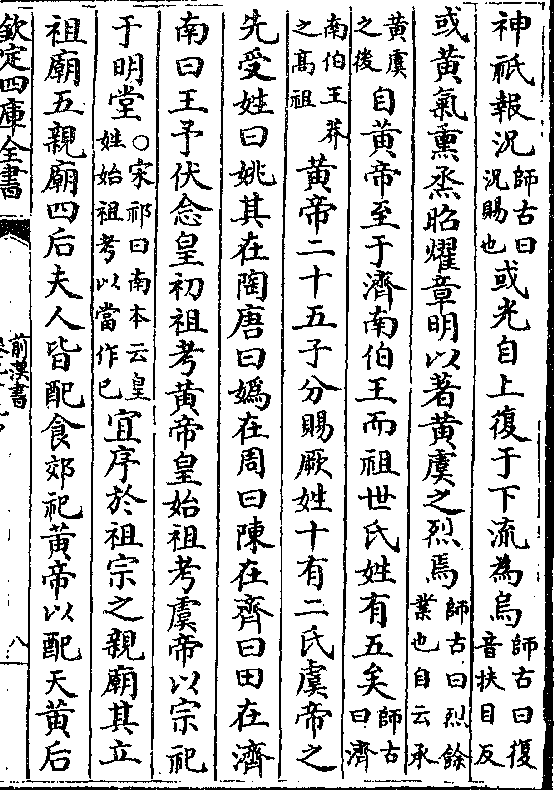 神祇報況師古曰況賜也或光自上復于下流為烏師古曰復音扶目反
或黄氣熏烝昭耀章明以著黄虞之烈焉師古曰烈餘業也自云承
黄虞之後自黄帝至于濟南伯王而祖世氏姓有五矣師古曰濟
南伯王莽之髙祖黄帝二十五子分賜厥姓十有二氏虞帝之
先受姓曰姚其在陶唐曰媯在周曰陳在齊曰田在濟
南曰王予伏念皇初祖考黄帝皇始祖考虞帝以宗祀
于明堂○宋祁曰南本云皇姓始祖考以當作已宜序於祖宗之親廟其立
祖廟五親廟四后夫人皆配食郊祀黄帝以配天黄后
欽定四庫全書
前漢書
八